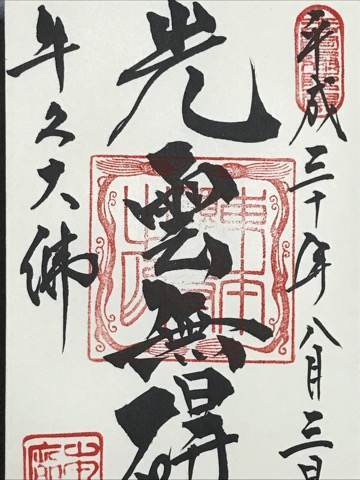 平成三十年八月三日
光雲無碍
牛久大佛